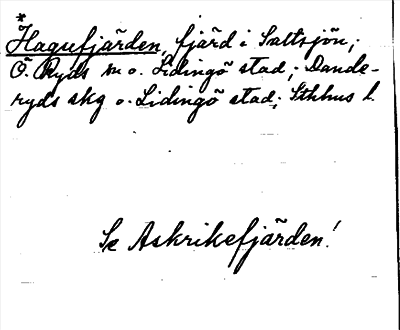 *
Hagufjärden, fjärd i Saltsjön;
Ö. Ryds sn o. Lidingö stad; Dande-
ryds skg o. Lidingö stad; Sthlms l.
Se Askrikefjärden!